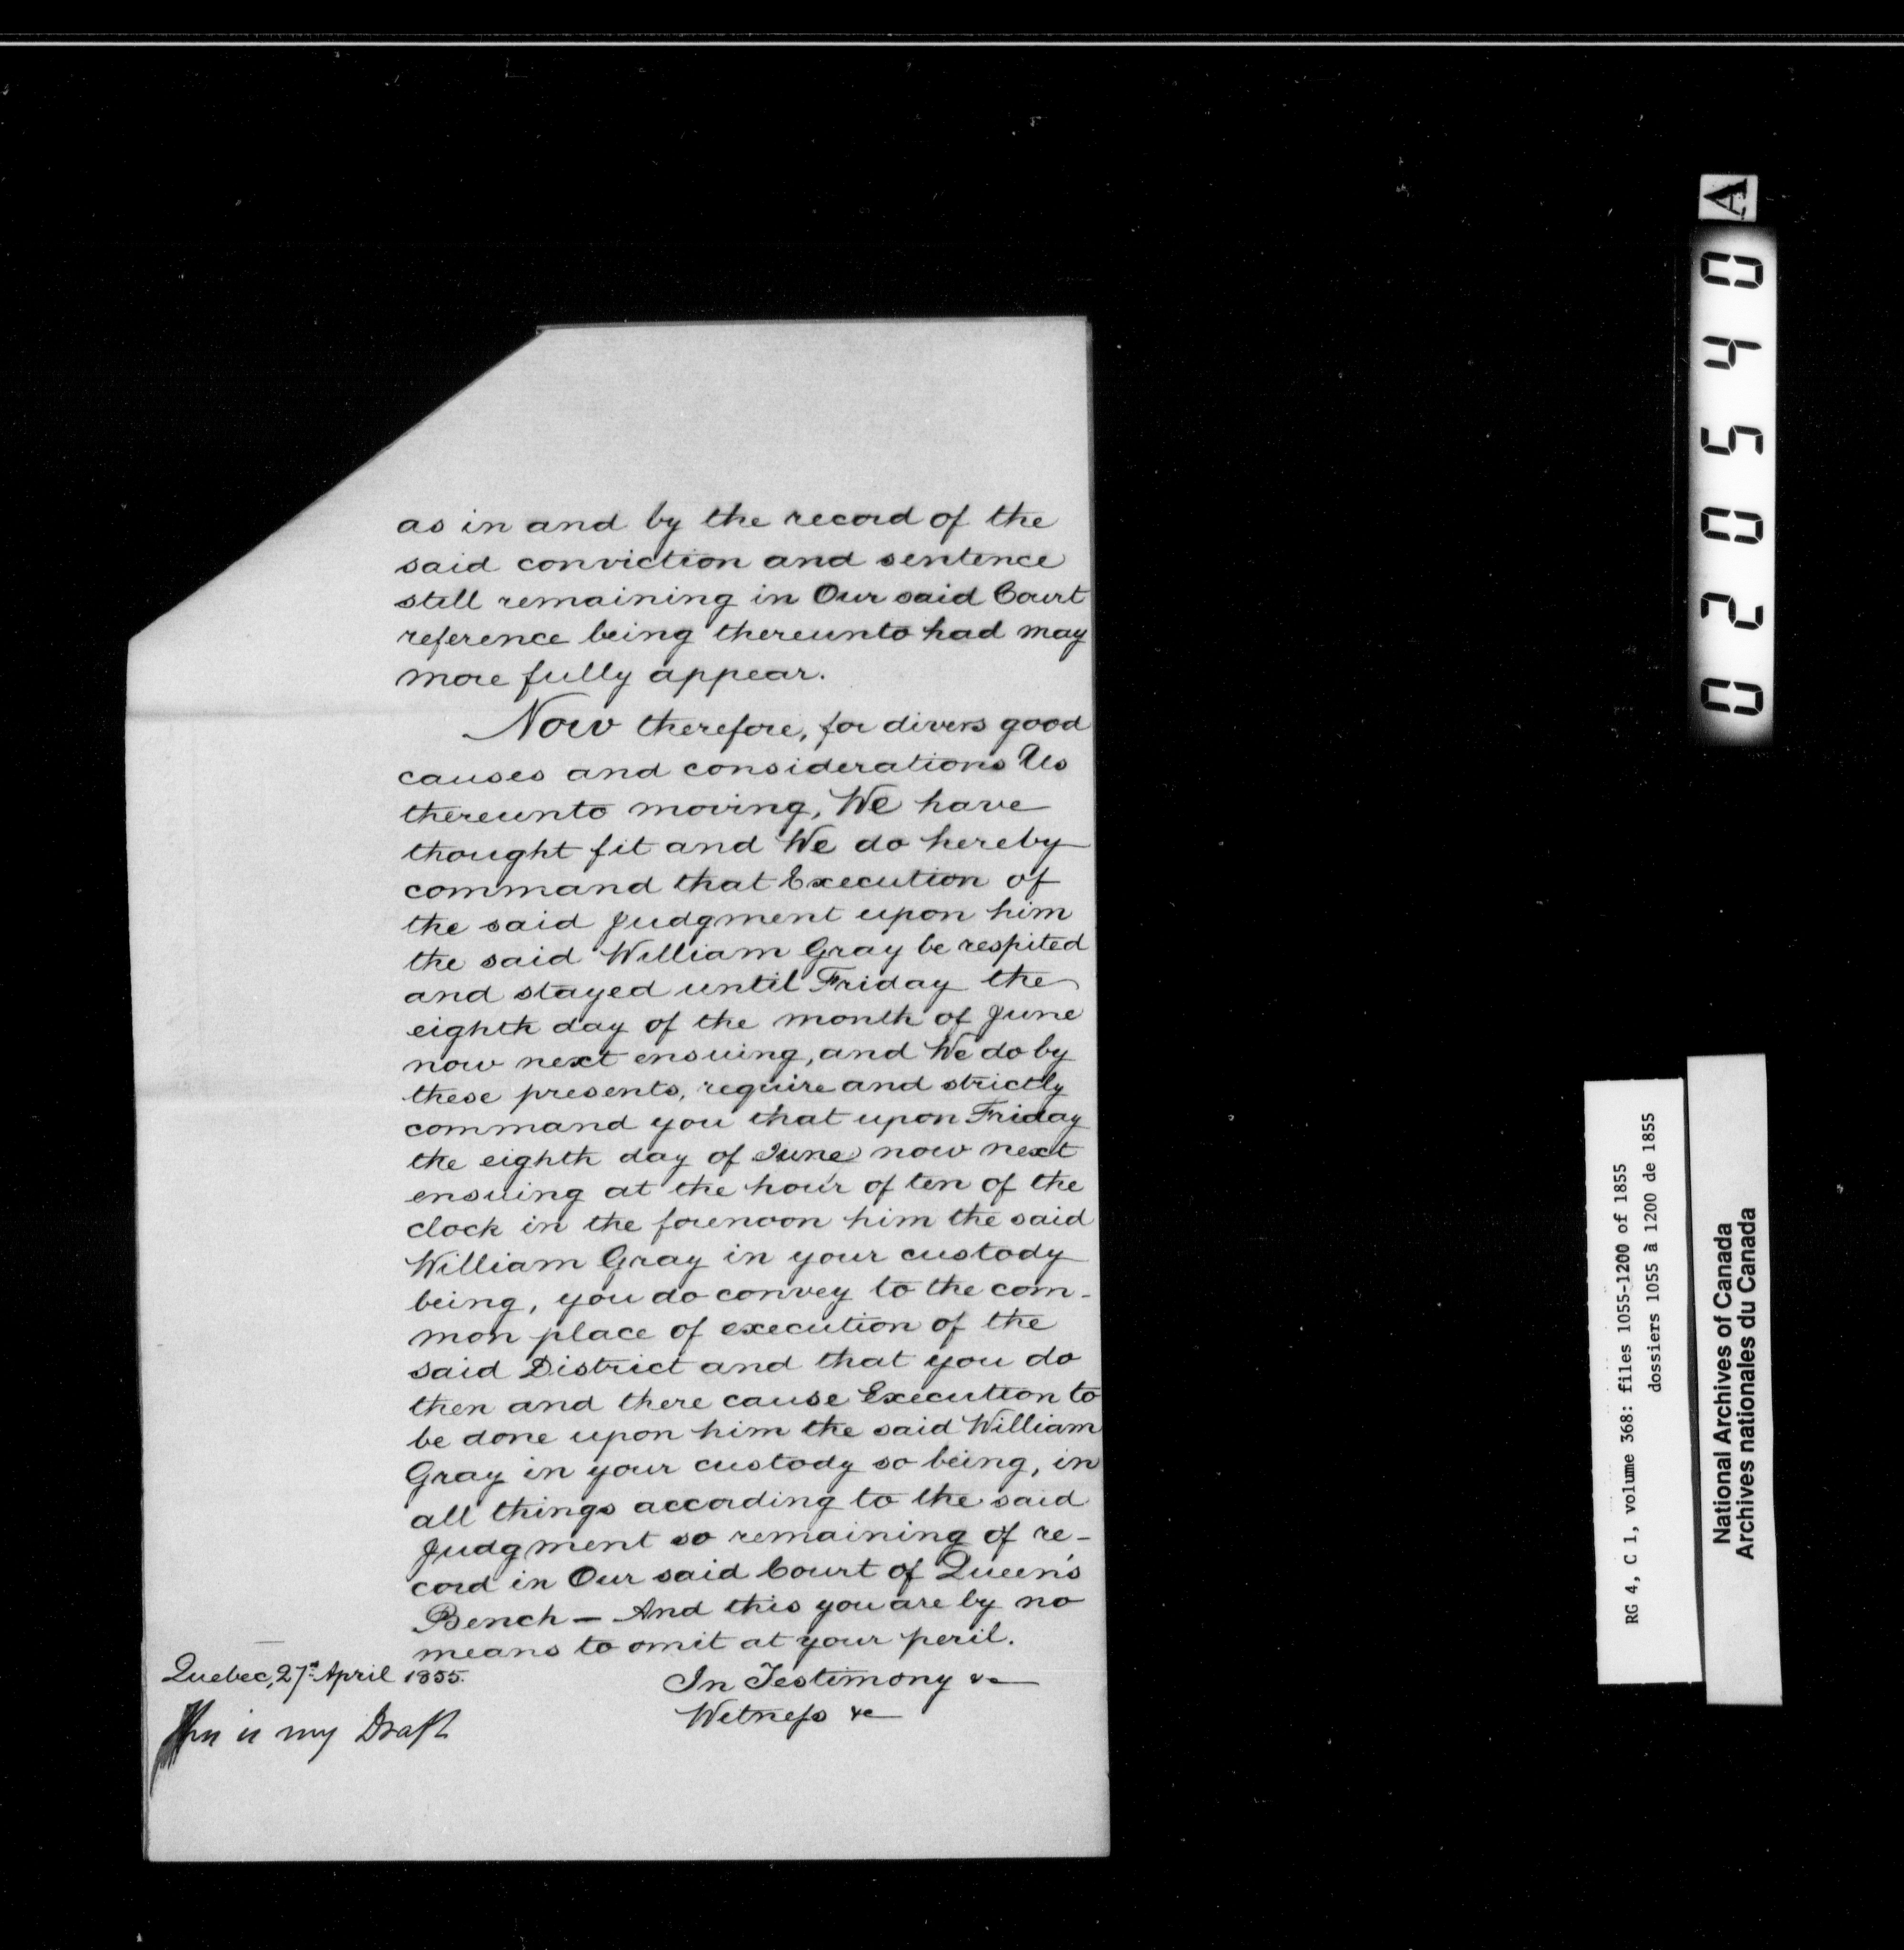 as in and by the record of the
said conviction and sentence
still remaining in Our said Court
reference being thereunto had may
more fully appear.
Now therefore, for divers good
causes and considerations Us
thereunto moving, We have
thought fit and We do hereby
command that Execution of
the said Judgment upon him
the said William Gray be respited
and stayed until Friday the
eighth day of the month of June
now next ensuing, and We do by
these presents, require and strictly
command you that upon Friday
the eighth day of June now next
ensuing at the hour of ten of the
clock in the forenoon him the said
William Gray in your custody
being, you do convey to the com-
mon place of execution of the
said District and that you do
then and there cause Execution to
be done upon him the said William
Gray in your custody so being, in
all things according to the said
Judgment so remaining of re-
cord in Our said Court of Queen's
Bench — And this you are by no
means to omit at your peril.
In Testimony &c
Witness &c
Quebec, 27th April 1855.
is my Draft
020540 A
RG 4, C 1, volume 368: files 1055-1200 of 1855
dossiers 1055 à 1200 de 1855
National Archives of Canada
Archives nationales du Canada